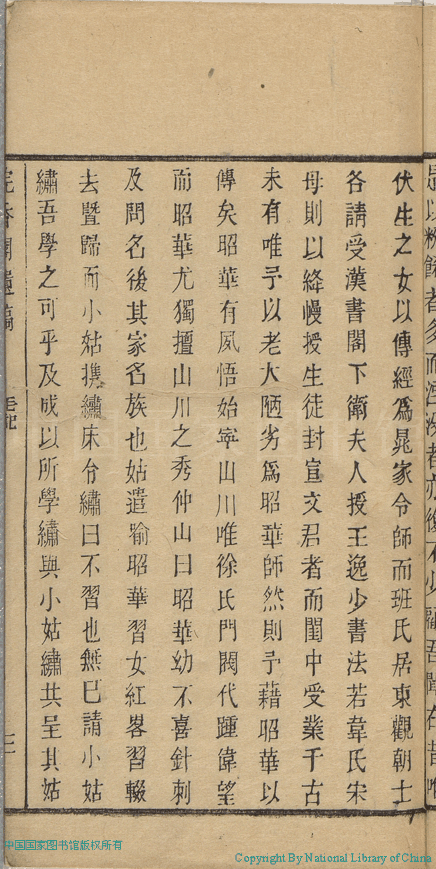 伏生之女以傳經爲晁家令師而班氏居東觀朝士
各請受漢書閣下衛夫人授王逸少書法若韋氏宋
母則以絳幔授生徒封宣文君者而閨中受業于古
未有唯予以老大陋劣爲昭華師然則予藉昭華以
傳矣昭華有夙悟始寧山川唯徐氏門閥代踵偉望
而昭華尤獨擅山川之秀仲山曰昭華幼不喜針刺
及問名後其家名族也姑遣喻昭華習女紅畧習輟
去暨歸而小姑携繡床令繡曰不習也無已請小姑
繡吾學之可乎及成以所學繡與小姑繡共呈其姑
三
中国国家图书馆版权所有
Copyright By National Library of China